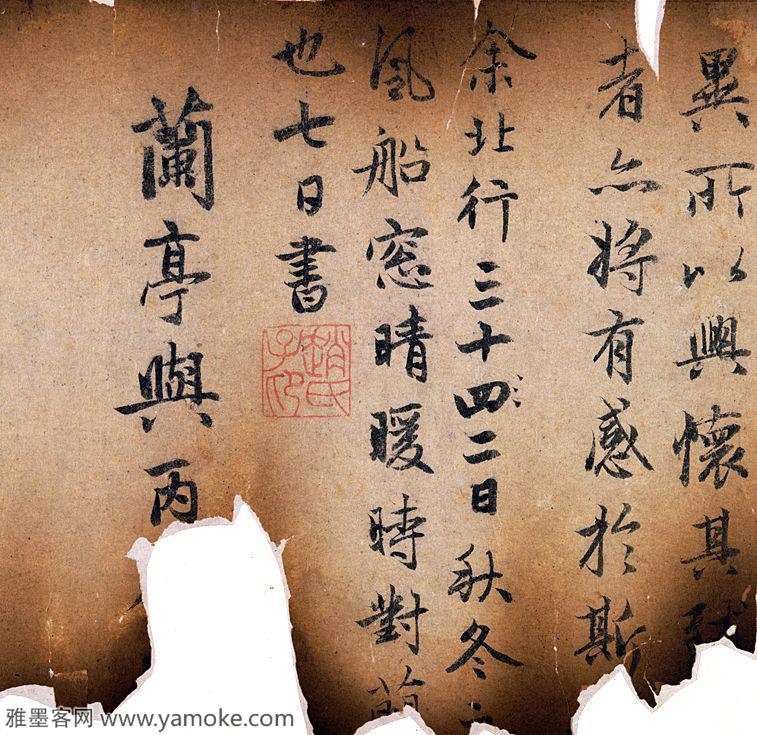 異所以興懷其致
者亦將有感於斯
余北行三十四二日秋冬
風船窓晴暖時對
也七日書
趙氏子印
蘭亭與丙
雅墨客网 www.yamoke.com